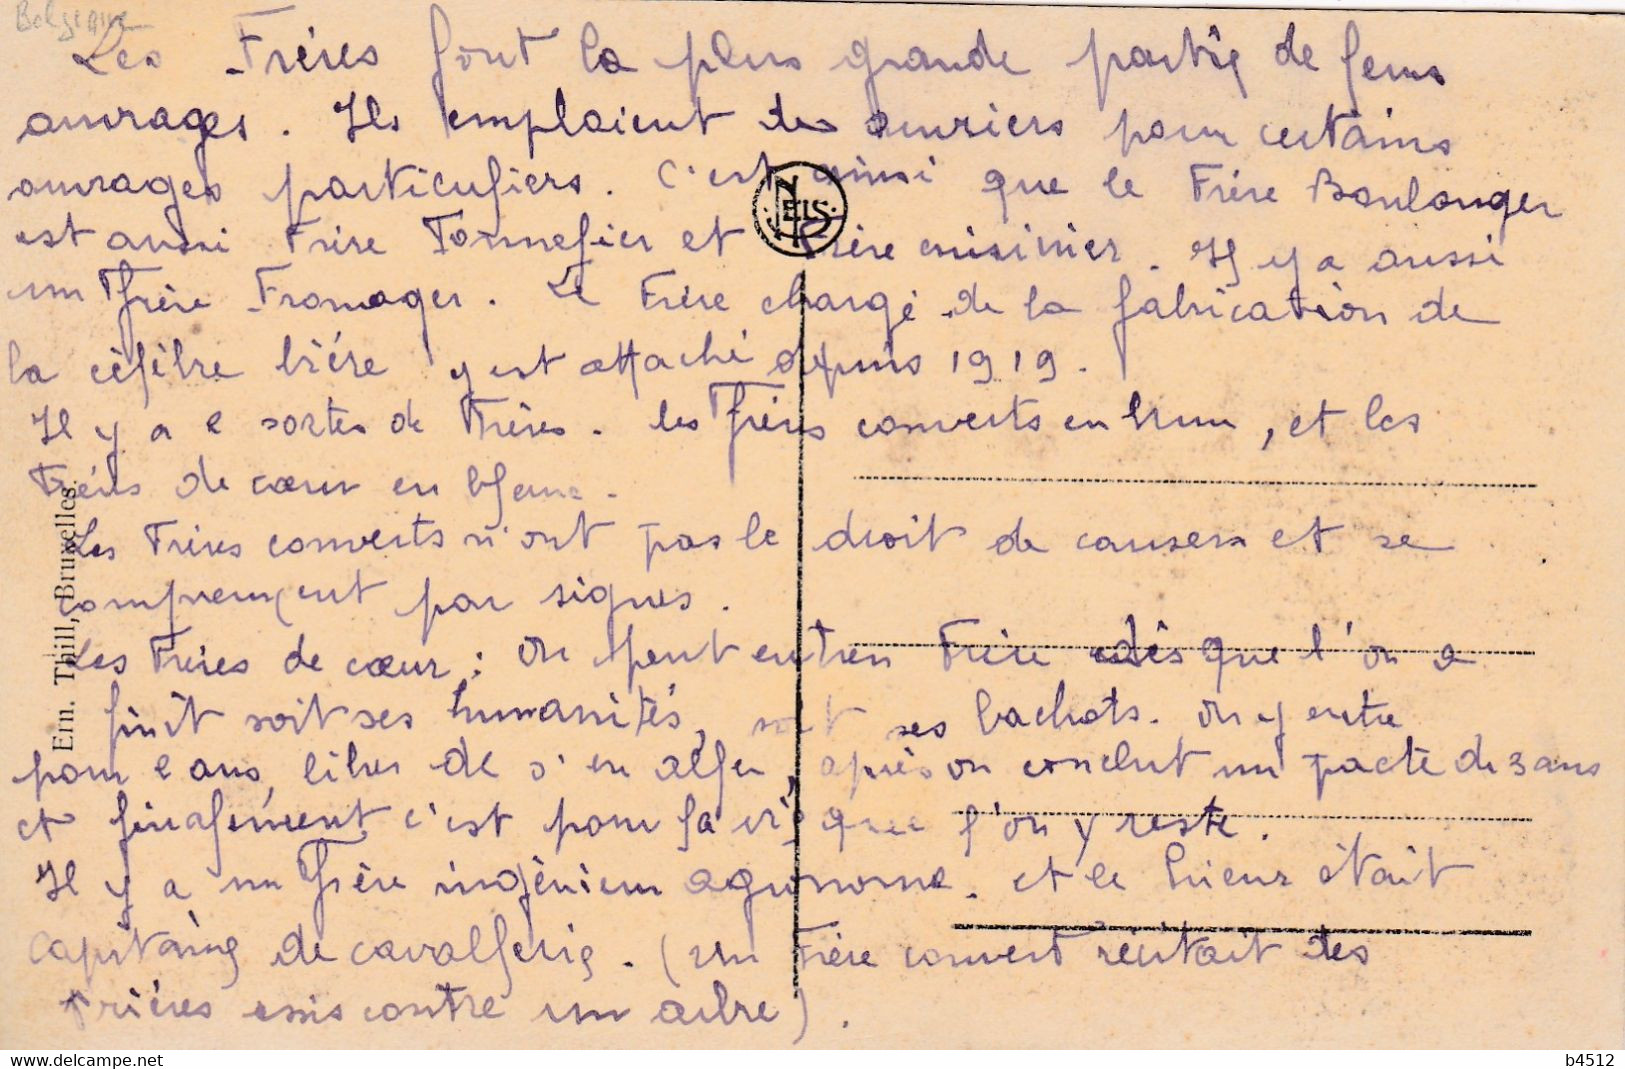 Belgique
Les Frères font la plus grande partie de leurs
ouvrages. Ils emploient des ouvriers pour certains
ouvrages particuliers. C'est ainsi que le Frère Boulanger
est aussi Frère Tonnelier et Frère cuisinier. Il y a aussi
un Frère Fromager. Le Frère chargé de la fabrication de
la célèbre bière y est attaché depuis 1919.
Il y a 2 sortes de Frères. les Frères converts en brun, et les
Frères de cœur en blanc.
Les Frères converts n'ont pas le droit de causer et se
comprennent par signes.
Les Frères de cœur : on peut entrer Frère dès que l'on a
finit soit ses humanités, soit ses bachots. On y entre
pour 2 ans, libre de s'en aller, après on conclut un pacte de 3 ans
et finalement c'est pour la vie que l'on y reste.
Il y a un Frère ingénieur agronome. et le Prieur était
Capitaine de cavallerie. (Un Frère convert récitait des
Prières assis contre un arbre).
NELS
Ern. Thill, Bruxelles.
delcampe.net
b4512